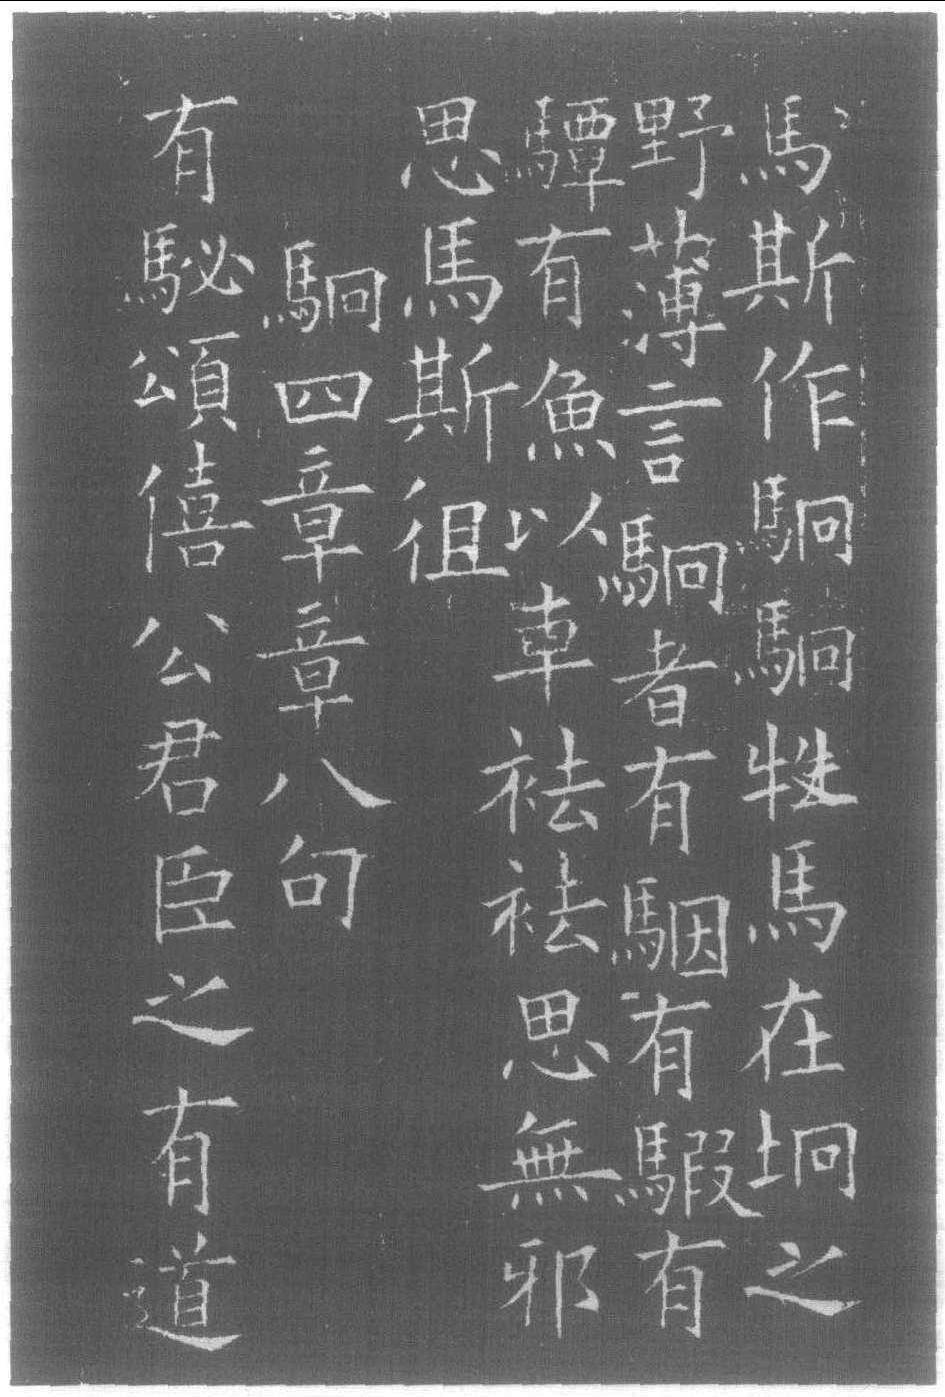 馬斯作駉駉牡馬在坰之
野薄言駉者有駰有騢有
驔有魚以車祛祛思無邪
思馬斯徂
駉四章章八句
有駜頌僖公君臣之有道